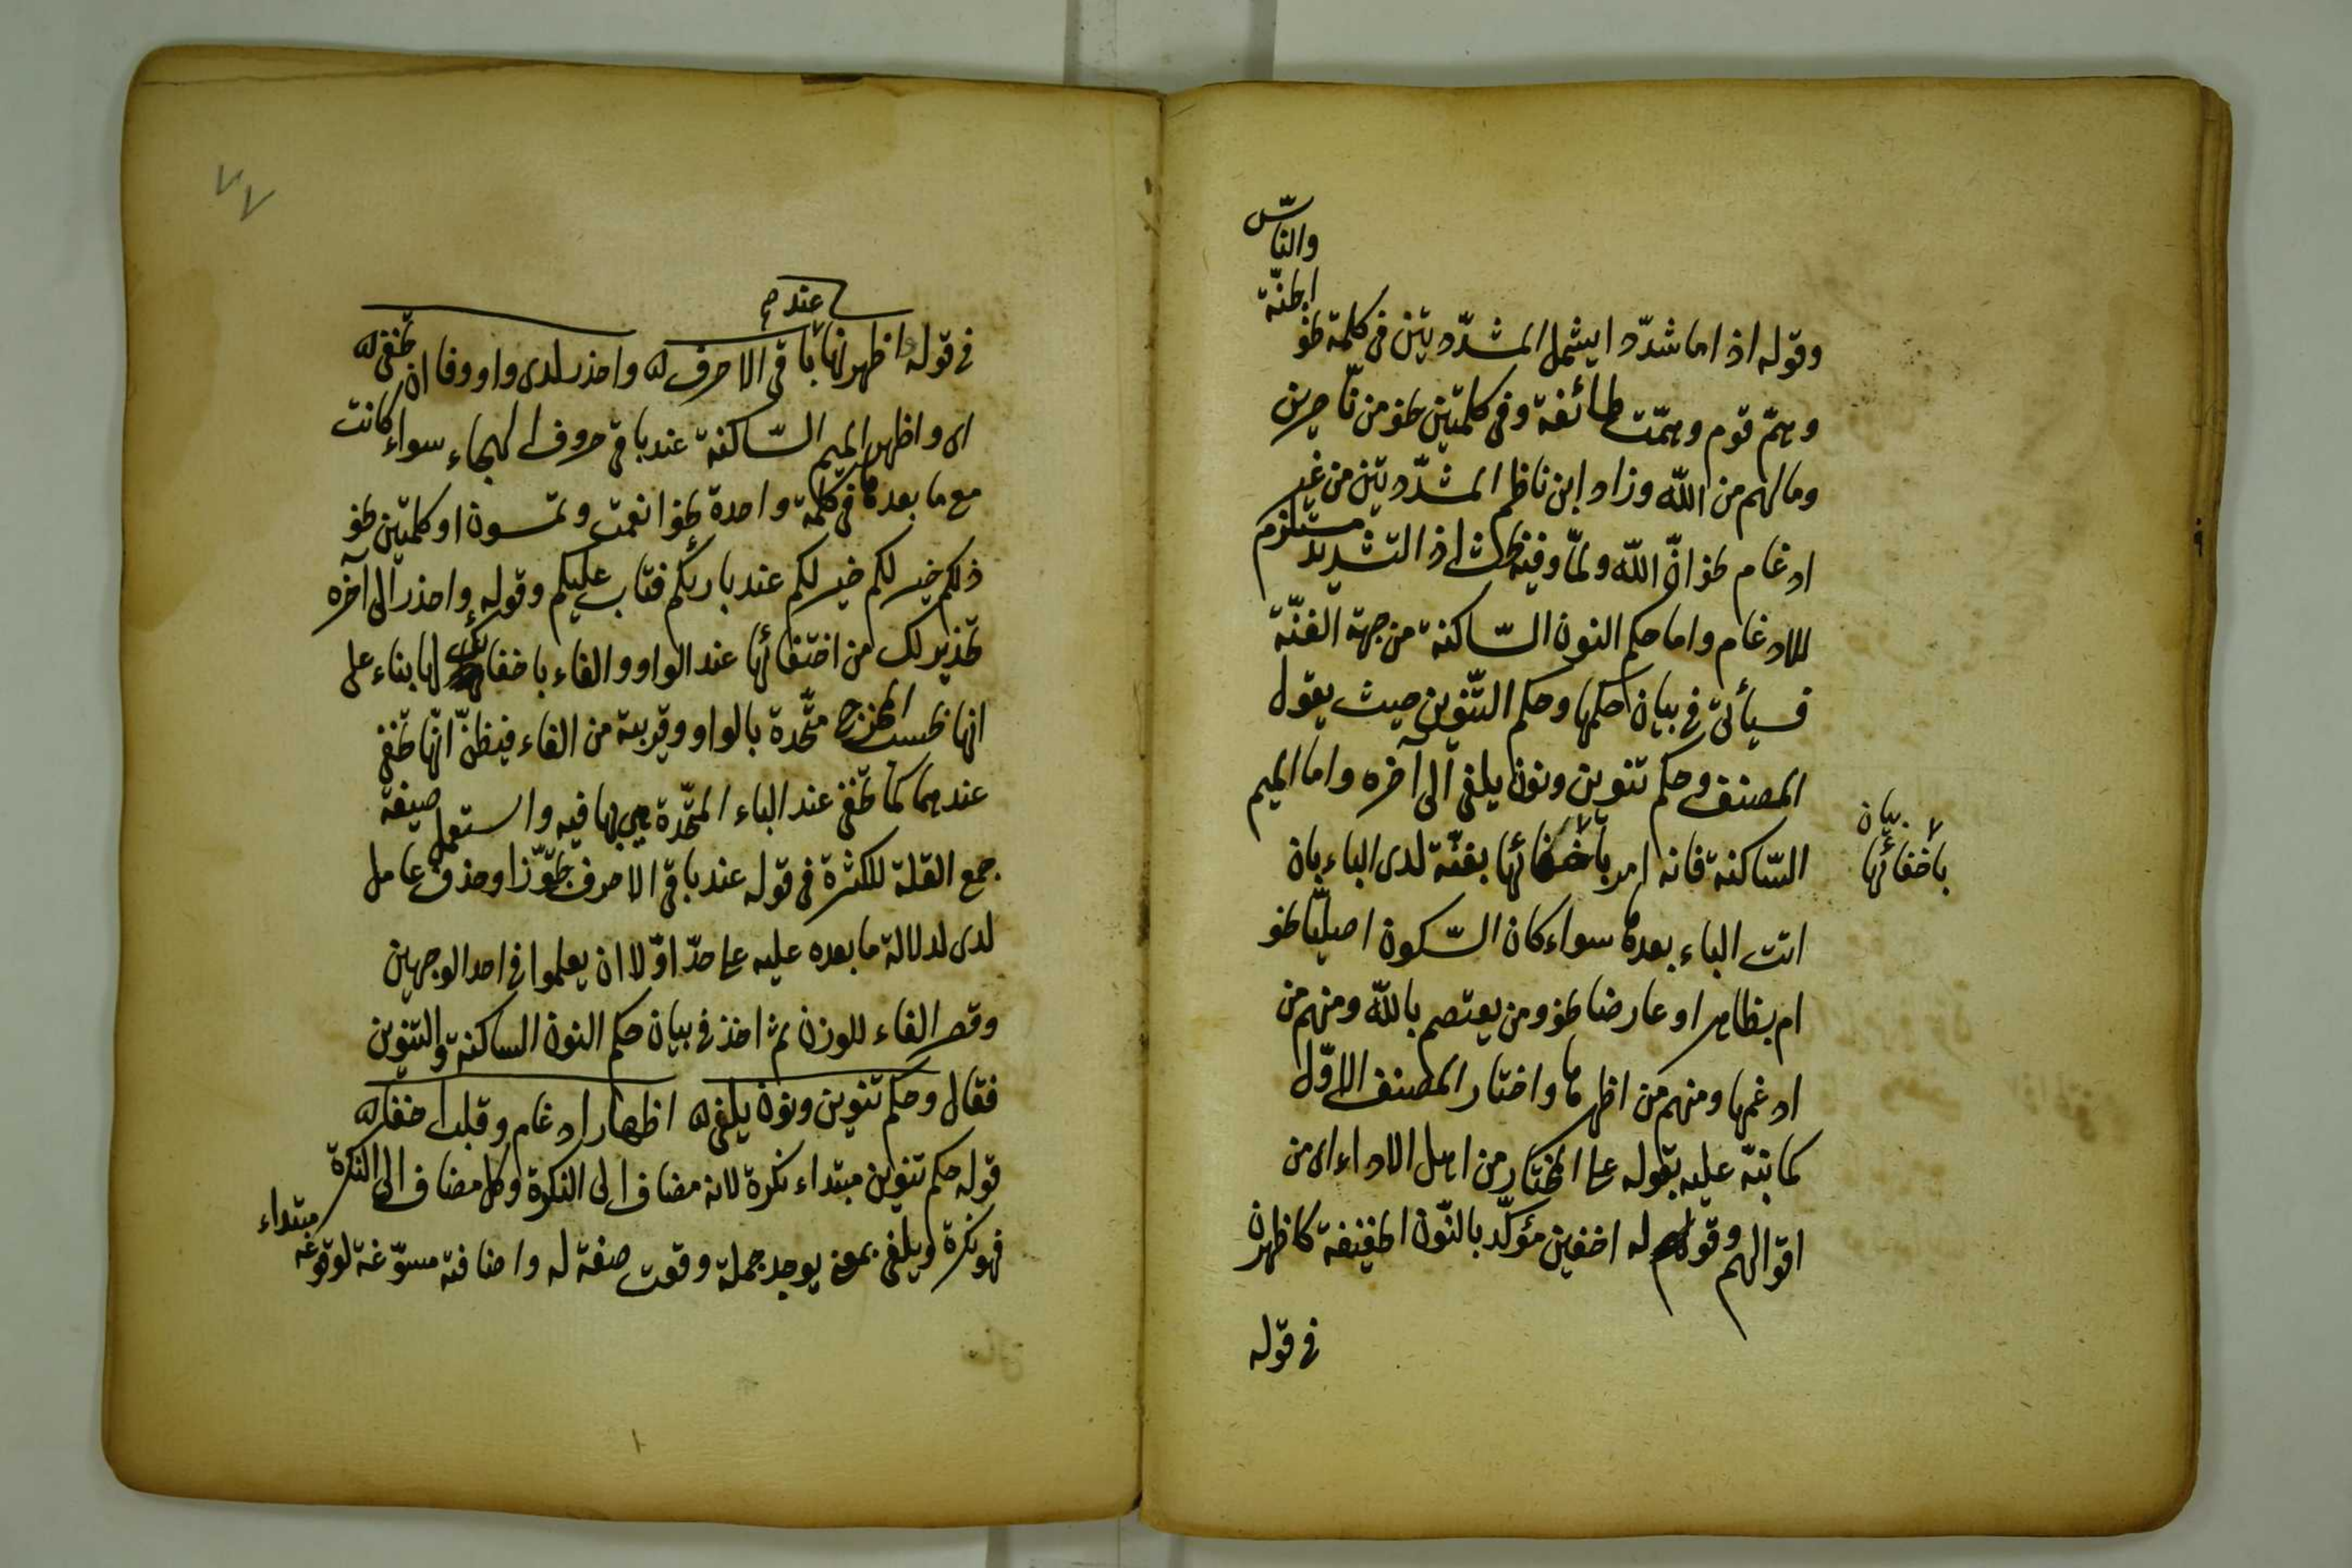 وقوله اذا ما شدّدا يشمل المشدّدتين فى كلمة نحو الجنّة والناس
وهمّ قوم وهمّت طائفة وفى كلمتين نحو من نّاصرين
وما لهم من الله وزاد ابن ناظم المشدّدتين من غير
ادغام نحو انّ الله ولمّا وفيه بحث اذ التشديد مستلزم
للادغام واما حكم النون السّاكنة من جهة الغنّة
فسيأتى فى بيان حكمها وحكم التّنوين حيث يقول
المصنف وحكم تنوين ونون يلفى الى آخره واما الميم
السّاكنة فانه امر باخفائها بغنّة لدى الباء بان
بيان
باخفائها
اتت الباء بعدها سواء كان السّكون اصليّا نحو
ام بظاهر او عارضا نحو ومن يعتصم بالله ومنهم من
ادغمها ومنهم من اظهرها واختار المصنف الاوّل
كما نبّه عليه بقوله على المختار من اهل الاداء اى من
اقوالهم وقوله اخفين مؤكّد بالنّون الخفيفة كاظهرن
فى قوله
٧٧
عند
فى قوله واظهرنها باقى الاحرف واحذر لدى واو وفا ان تختفى
اى واظهر الميم السّاكنة عند باقى حروف الهجاء سواء كانت
مع ما بعدها فى كلمة واحدة نحو انعمت وتمسون او كلمتين نحو
ذلكم خير لكم خير لكم عند بارئكم فتاب عليكم وقوله واحذر الى آخره
تحذير لك من اختفائها عند الواو والفاء باخفائك لها بناء على
انها بحسب المخرج متّحدة بالواو وقريبة من الفاء فيظنّ انّها تخفى
عندهما كما تخفى عند الباء المتّحدة هى بها فيه واستعمل صيغة
جمع القلة للكثرة فى قوله عند باقى الاحرف تجوّزا وحذف عامل
لدى لدلالة ما بعده عليه على حدّ اوّلا ان يعلموا فى احد الوجهين
وقصر الفاء للوزن ثم اخذ فى بيان حكم النون الساكنة والتنوين
فقال وحكم تنوين ونون يلفى اظهار ادغام وقلب اخفا
قوله حكم تنوين مبتداء نكرة لانه مضاف الى النكرة وكل مضاف الى النكرة
فهو نكرة ويلفى بمعنى يوجد جملة وقعت صفة له واضافته مسوّغة لوقوعه مبتداء